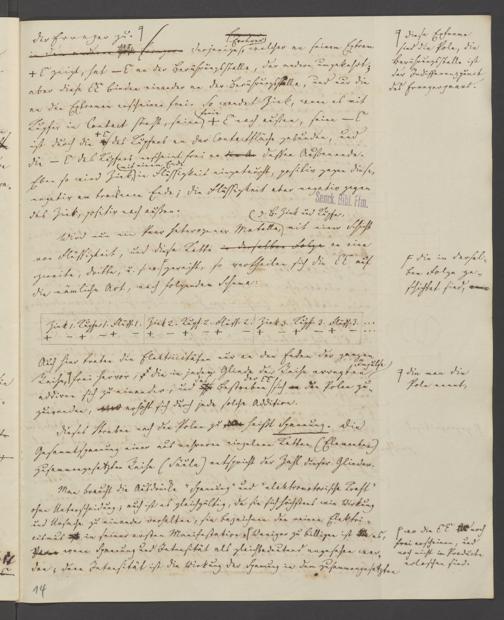 der Erreger zu.
derjenige, welcher an seinem Extrem
+E zeigt, hat –E an der Berührungsstelle, der andere umgekehrt;
aber diese EE binden einander an der Berührungsstelle, und nur die
an die Extremen erscheinen frei. So sendet Zink, wenn es mit
Kupfer in Contact steht, sein +E nach außen, seine –E
ist durch die +E des Kupfers an der Contactfläche gebunden, und
die –E des Kupfers erscheint frei an dessen Außenende.
Eben so wird Zink in Flüssigkeit eingetaucht, positiv gegen diese,
negativ am trockenen Ende; die Flüssigkeit aber negativ gegen
das Zink, positiv nach außen.
Senck. Bibl. Ffm.
(z. B. Zink und Kupfer)
Wird nun ein Paar heterogener Metalle mit einer Schicht
von Flüssigkeit, und diese Kette an eine
zweite, dritte, u. s. w. gereiht, so vertheilen sich die EE auf
die nämliche Art, nach folgendem Schema:
Zink 1. Kupf. 1. Flüss. 1. Zink 2. Kupf. 2. Flüss. 2. Zink 3. Kupf. 3. Flüss. 3. ...
– + – + – + – + – + – + – + – + – + ...
Auch hier treten die Elektricitäten nur an den Enden der ganzen
Reihe frei hervor; die in jedem Gliede der Reihe erregten
addiren sich zu einander, und bestreben sich den Polen zu-
zuwenden, erhöht sich durch jede solche Addition.
Dieses Streben nach den Polen zu heißt Spannung. Die
Gesammtspannung einer aus mehreren einzelnen Ketten (Elementen)
zusammengesetzten Reihe (Säule) entspricht der Zahl dieser Glieder.
Man braucht die Ausdrücke "Spannung" und "elektromotorische Kraft"
ohne Unterscheidung; auch ist es gleichgültig, da sie sich höchstens wie Wirkung
und Ursache zu einander verhalten; sie bezeichnen den reinen Elektri-
cismus in seiner ersten Manifestation. Weniger zu billigen ist es,
wenn Spannung und Intensität als gleichbedeutend angesehen wer-
den; denn Intensität ist die Wirkung der Spannung in den zusammengesetzten
14
diese Extreme
sind die Pole, die
Berührungsstelle ist
der Indifferenzpunct
des Erregerpaares.
die in dersel-
ben Folge ge-
schichtet sind,
die man die
Pole nennt,
wo die EE noch
frei erscheinen, und
noch nicht im Producte
erloschen sind.